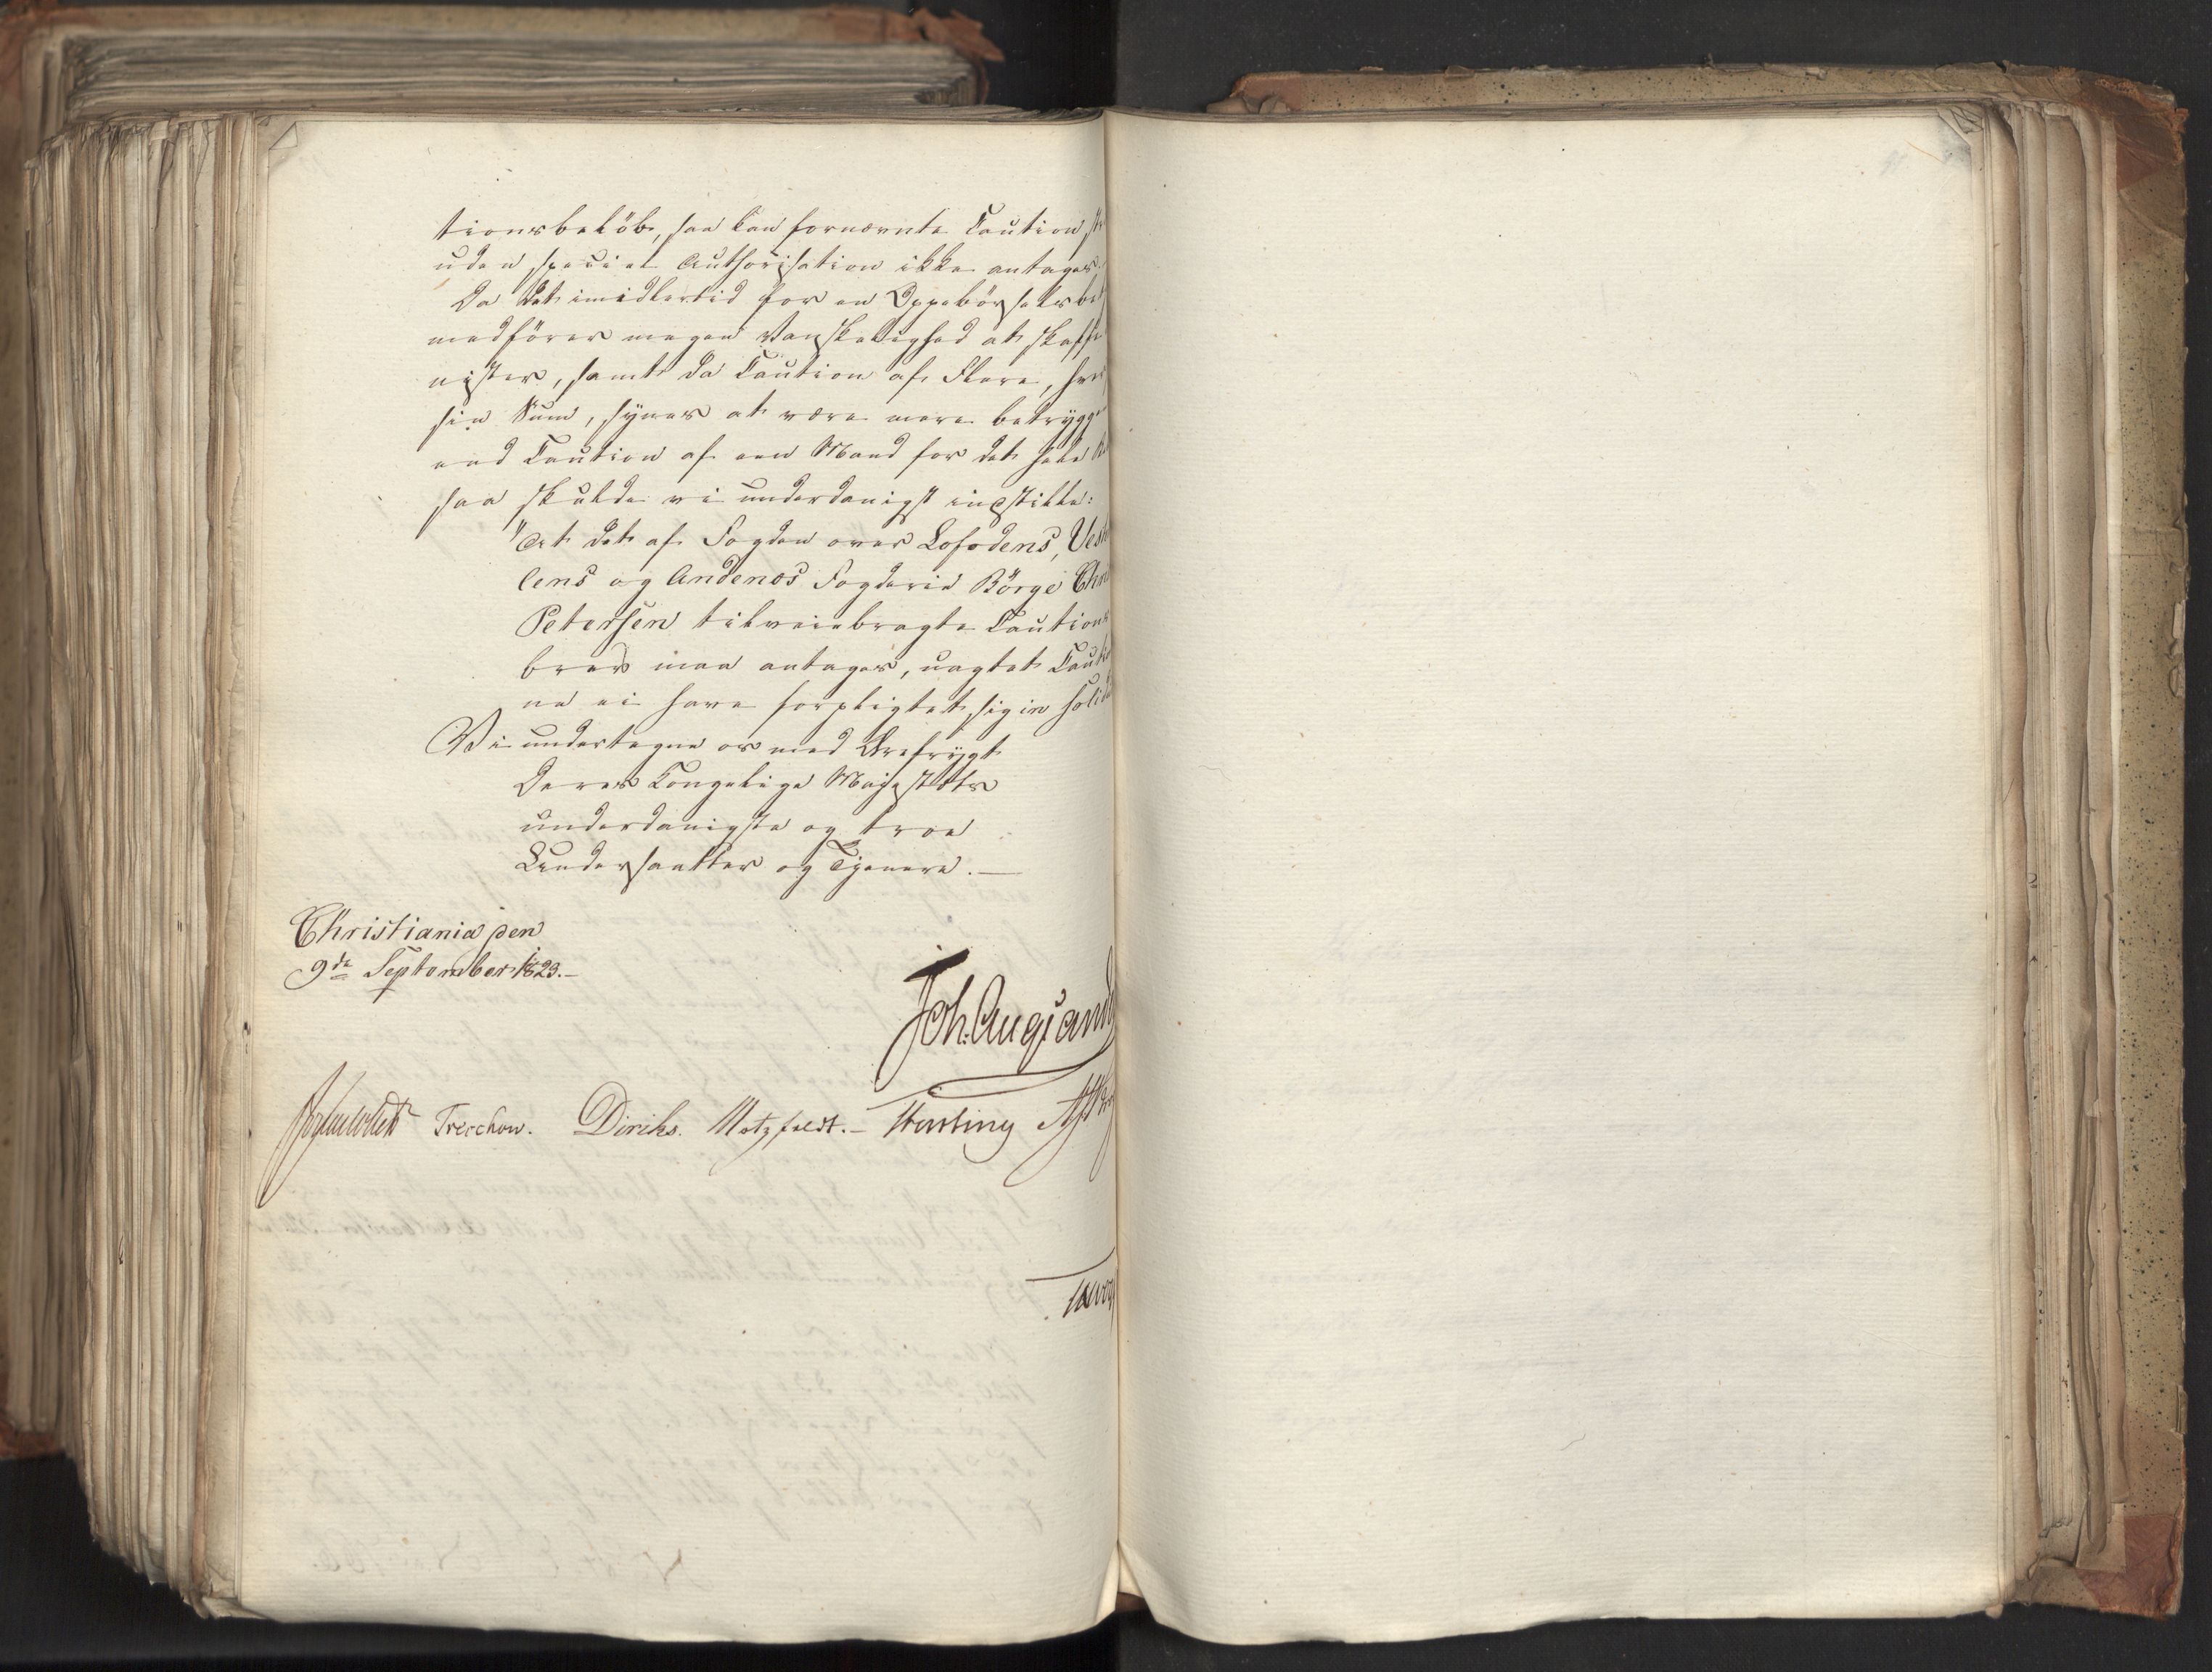 tionsbeløb, saa kan fornævnte Caution
uden speciel Authorisation ikke antages.
Da det imidlertid for en Oppebørselsbe
medfører megen Vanskelighed at skaffe
nister, samt da Caution af Flere, hver
sin Sum, synes at være mere betrygge
end Caution af een Mand for det hele
saa skulde vi underdanigst indstille:
"At det af Fogden over Lofodens, Veste
lens og Andenæs Fogderie Börge Chri
Petersen tilveiebragte Cautions
brev maa antages, uagtet Cautio
ne ei have forpligtet sig in solid
Vi undertegne os med Ærefrygt
Deres Kongelige Majestæts
underdanigste og troe
Undersaatter og Tjenere.—
Christiania den
9de September 1823.—
Joh. Aug: Sand
Treschow. Diriks. Motzfeldt.—